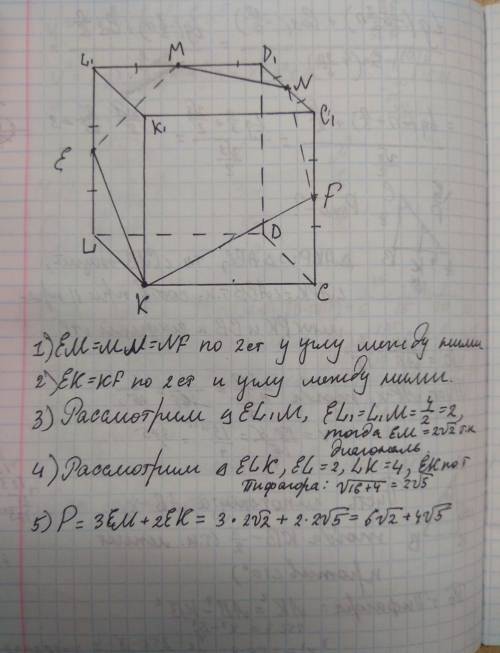 L₁ M D₁
N
K₁ C₁
E
F
L D
K C
1) EM=MN=NF по 2ст у углу между ними
2) EK=KF по 2ст и углу между ними.
3) Рассмотрим △EL₁M, EL₁=L₁M=4/2=2,
тогда EM=2√2 т.к
диагональ
4) Рассмотрим △ELK, EL=2, LK=4, EK по т
Пифагора: √16+4=2√5
5) P=3EM+2EK=3·2√2+2·2√5=6√2+4√5